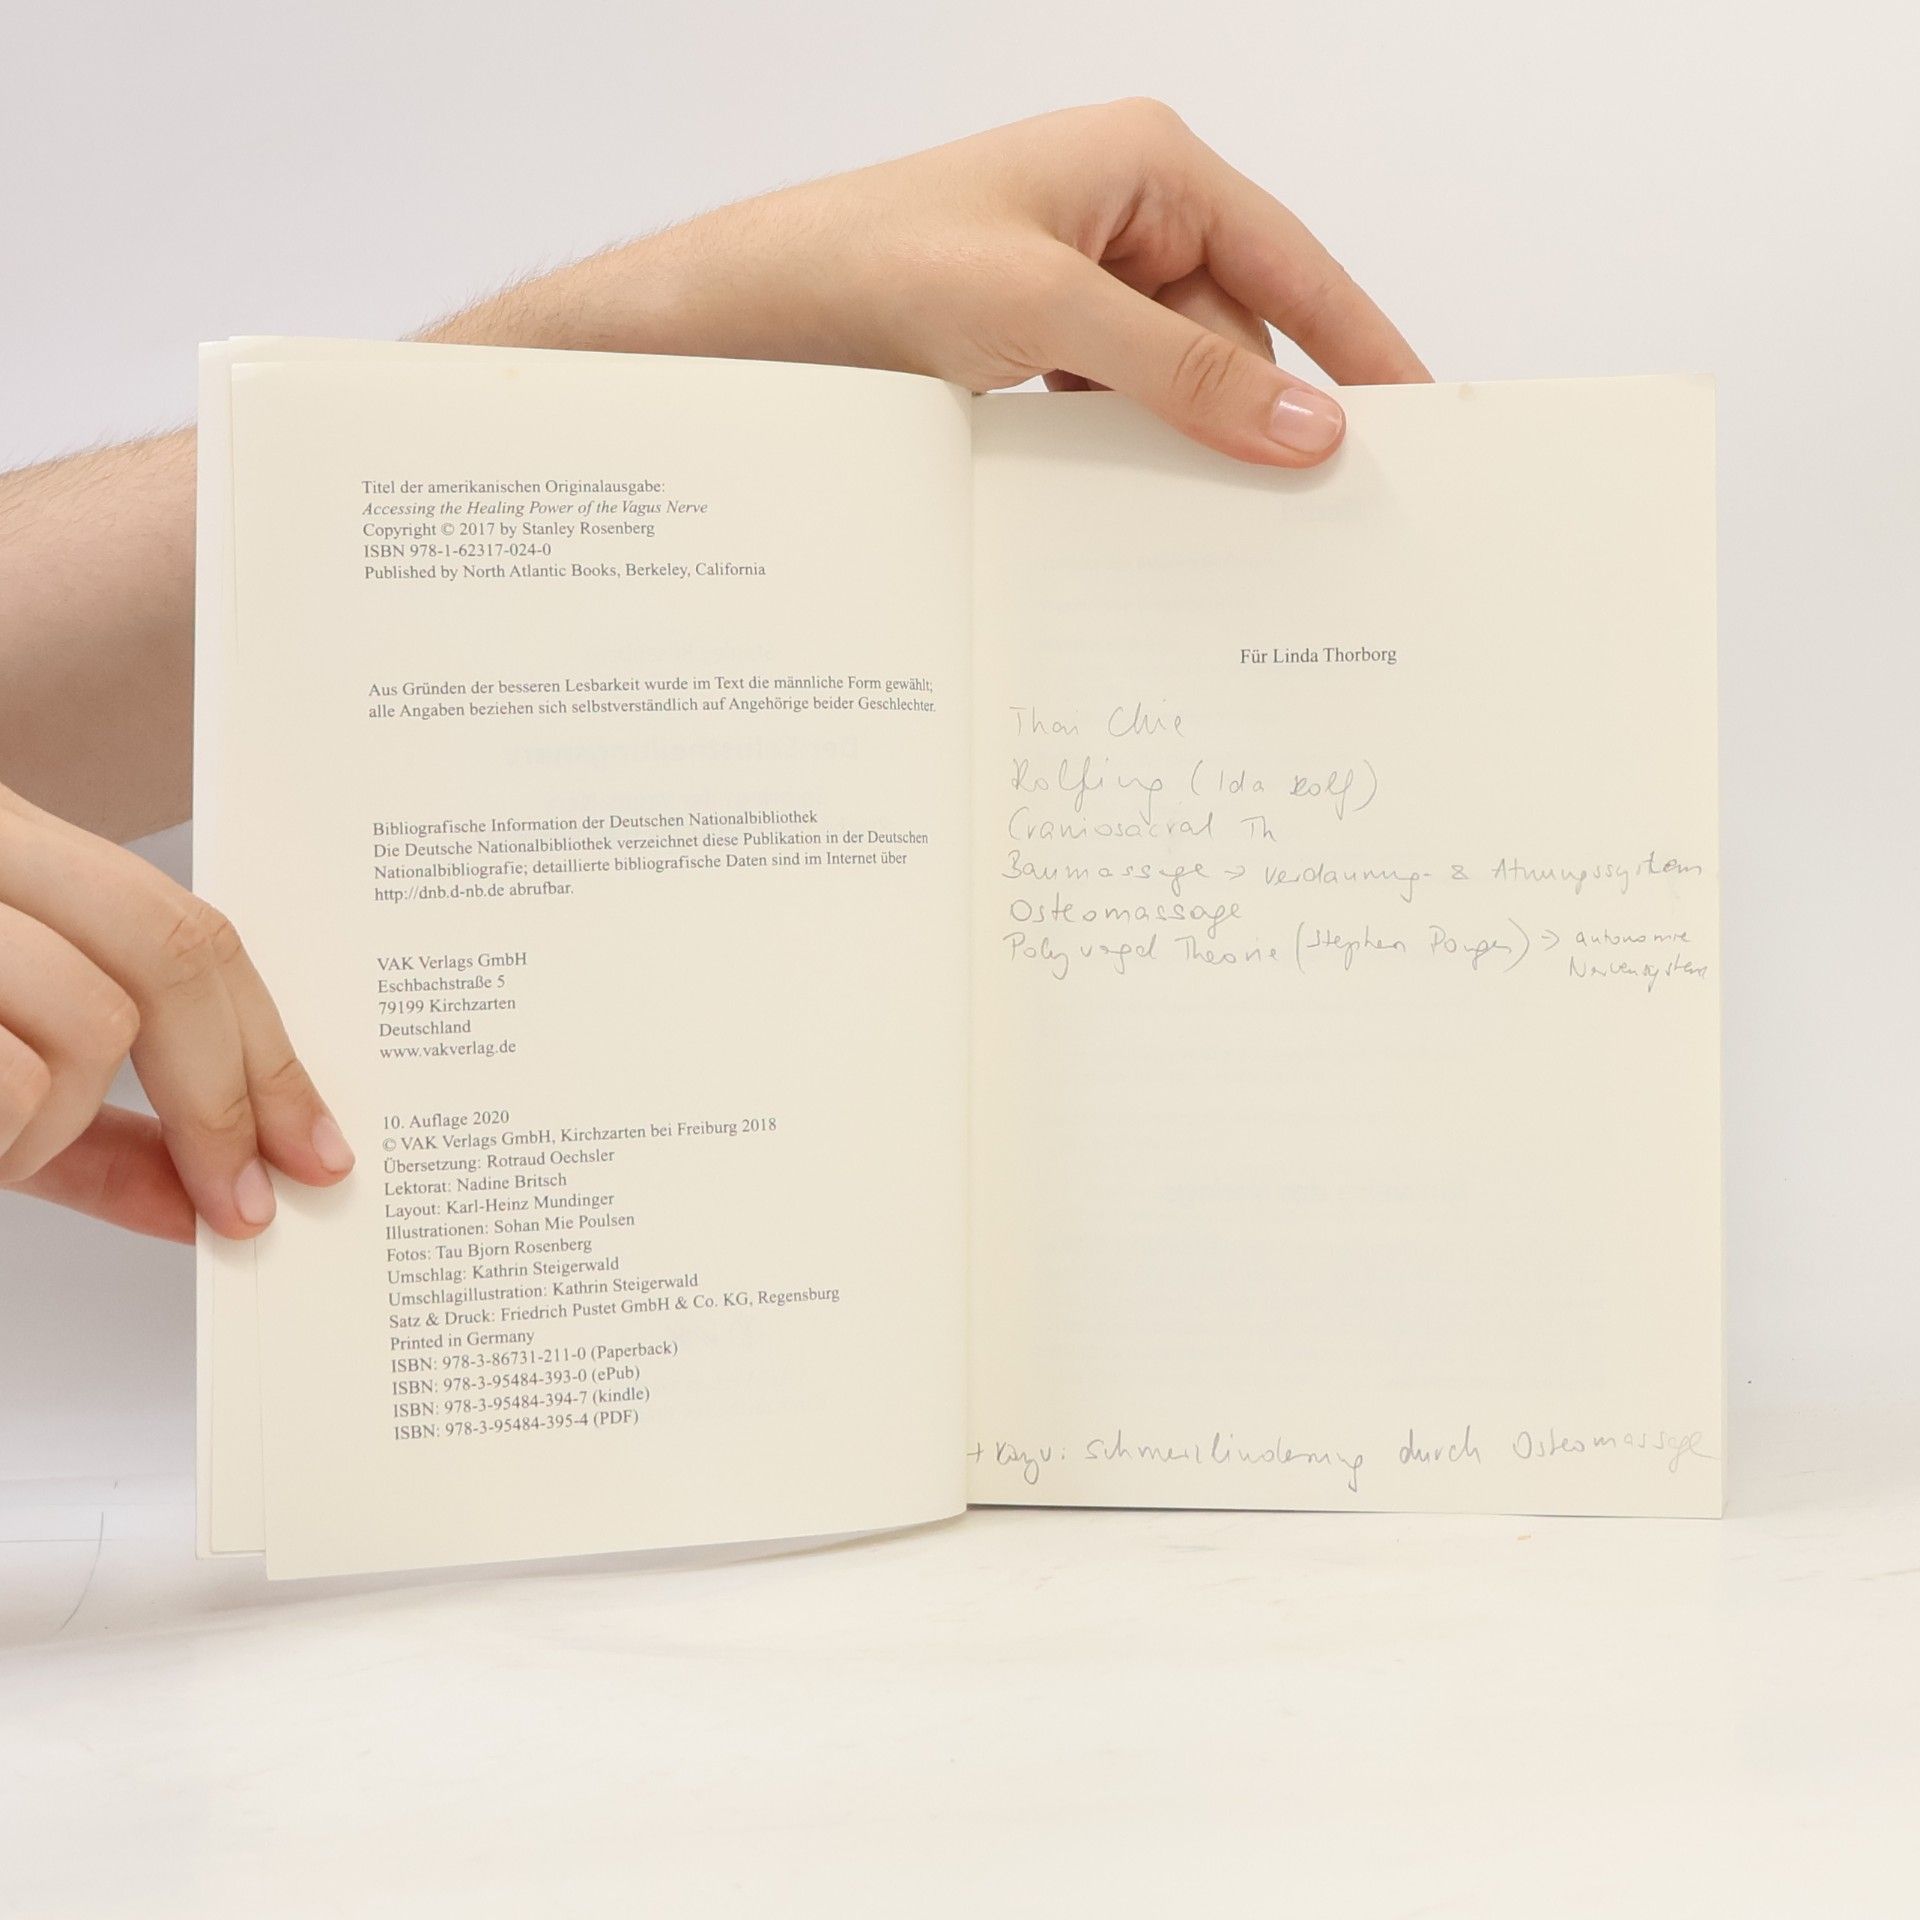 Titel der amerikanischen Originalausgabe:
Accessing the Healing Power of the Vagus Nerve
Copyright © 2017 by Stanley Rosenberg
ISBN 978-1-62317-024-0
Published by North Atlantic Books, Berkeley, California
Aus Gründen der besseren Lesbarkeit wurde im Text die männliche Form gewählt;
alle Angaben beziehen sich selbstverständlich auf Angehörige beider Geschlechter.
Bibliografische Information der Deutschen Nationalbibliothek
Die Deutsche Nationalbibliothek verzeichnet diese Publikation in der Deutschen
Nationalbibliografie; detaillierte bibliografische Daten sind im Internet über
http://dnb.d-nb.de abrufbar.
VAK Verlags GmbH
Eschbachstraße 5
79199 Kirchzarten
Deutschland
www.vakverlag.de
10. Auflage 2020
© VAK Verlags GmbH, Kirchzarten bei Freiburg 2018
Übersetzung: Rotraud Oechsler
Lektorat: Nadine Britsch
Layout: Karl-Heinz Mundinger
Illustrationen: Sohan Mie Poulsen
Fotos: Tau Bjorn Rosenberg
Umschlag: Kathrin Steigerwald
Umschlagillustration: Kathrin Steigerwald
Satz & Druck: Friedrich Pustet GmbH & Co. KG, Regensburg
Printed in Germany
ISBN: 978-3-86731-211-0 (Paperback)
ISBN: 978-3-95484-393-0 (ePub)
ISBN: 978-3-95484-394-7 (kindle)
ISBN: 978-3-95484-395-4 (PDF)
Für Linda Thorborg
Thai Chie
Rolfing (Ida Rolf)
Craniosacral Th
Baumassage → Verdauung- & Atmungssystem
Osteomassage
Poly vagal Theorie (Stephen Porges) → autonomie
Nervensystem
+ : Schmerzlinderung durch Osteomassage